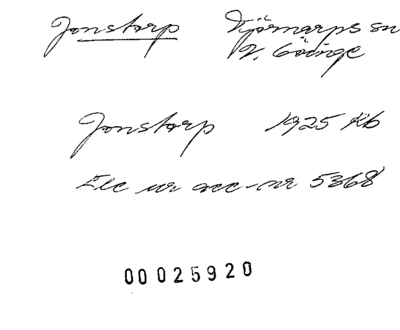 Jonstorp Tjörnarps sn
V. Göinge
Jonstorp 1925 Kb
Exc ur acc-nr 5368
00025920